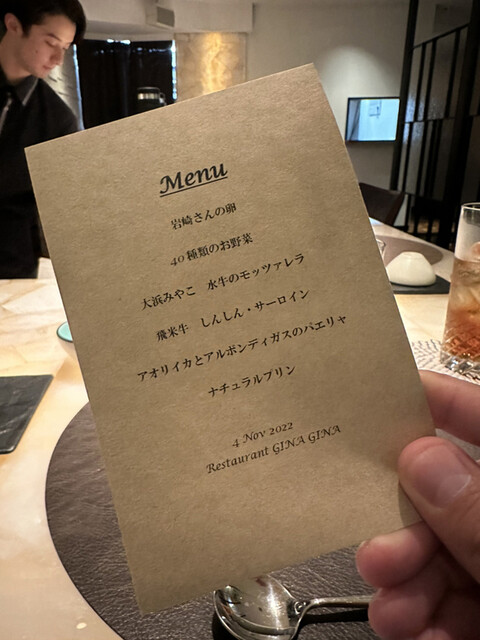 Menu
岩崎さんの卵
40種類のお野菜
大浜みやこ　水牛のモッツァレラ
飛米牛　しんしん・サーロイン
アオリイカとアルボンディガスのパエリャ
ナチュラルプリン
4 Nov 2022
Restaurant GINA GINA